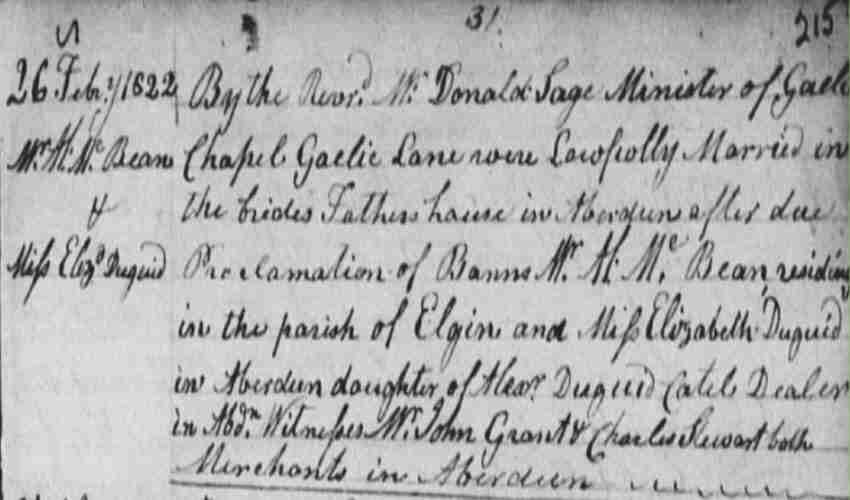 31
215
26 Febry 1822
Mr. H. Mc. Bean
&
Miss Elizh Duguid
By the Revrd. Mr. Donald Sage Minister of Gaelic
Chapel Gaelic Lane were Lawfully Married in
the brides Fathers house in Aberdeen after due
Proclamation of Banns Mr. H. Mc. Bean, residing
in the parish of Elgin and Miss Elizabeth Duguid
in Aberdeen daughter of Alexr. Duguid Catele Dealer
in Abdn. Witnesses Mr. John Grant & Charles Stewart both
Merchants in Aberdeen